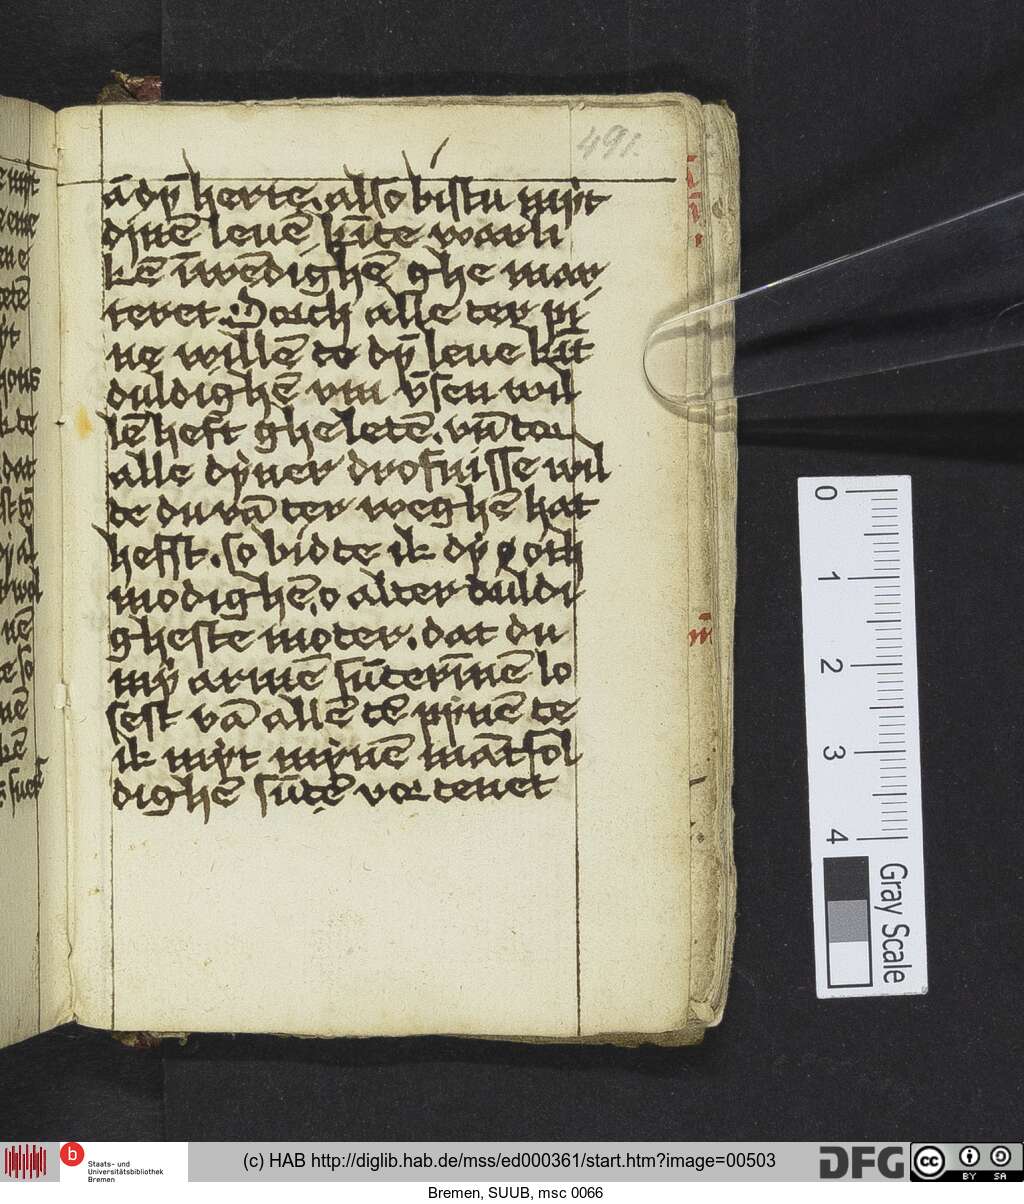 491.
ā dy̅ herte. also bistu myt
dinē leuē kīte warli
kē īwēdighē ghe mar
teret. Dorch alle ter pi
ne willē te dy̅ leue kīt
duldighē vm v̄sen wil
lē heft gheletē. vn̄ tor
alle dyner drofnisse wil
te du vā ter weghē hat
hefft. so bidte ik dy oth
modighē, o alter duldi
gheste moter. dat du
my armē sūterīnē lo
sest vā allē tē pynē te
ik myt mynē mātfol
dighē sūtē vortenet
0
1
2
3
4
Gray Scale
b
Staats- und
Universitätsbibliothek
Bremen
(c) HAB http://diglib.hab.de/mss/ed000361/start.htm?image=00503
DFG
cc
BY SA
Bremen, SUUB, msc 0066